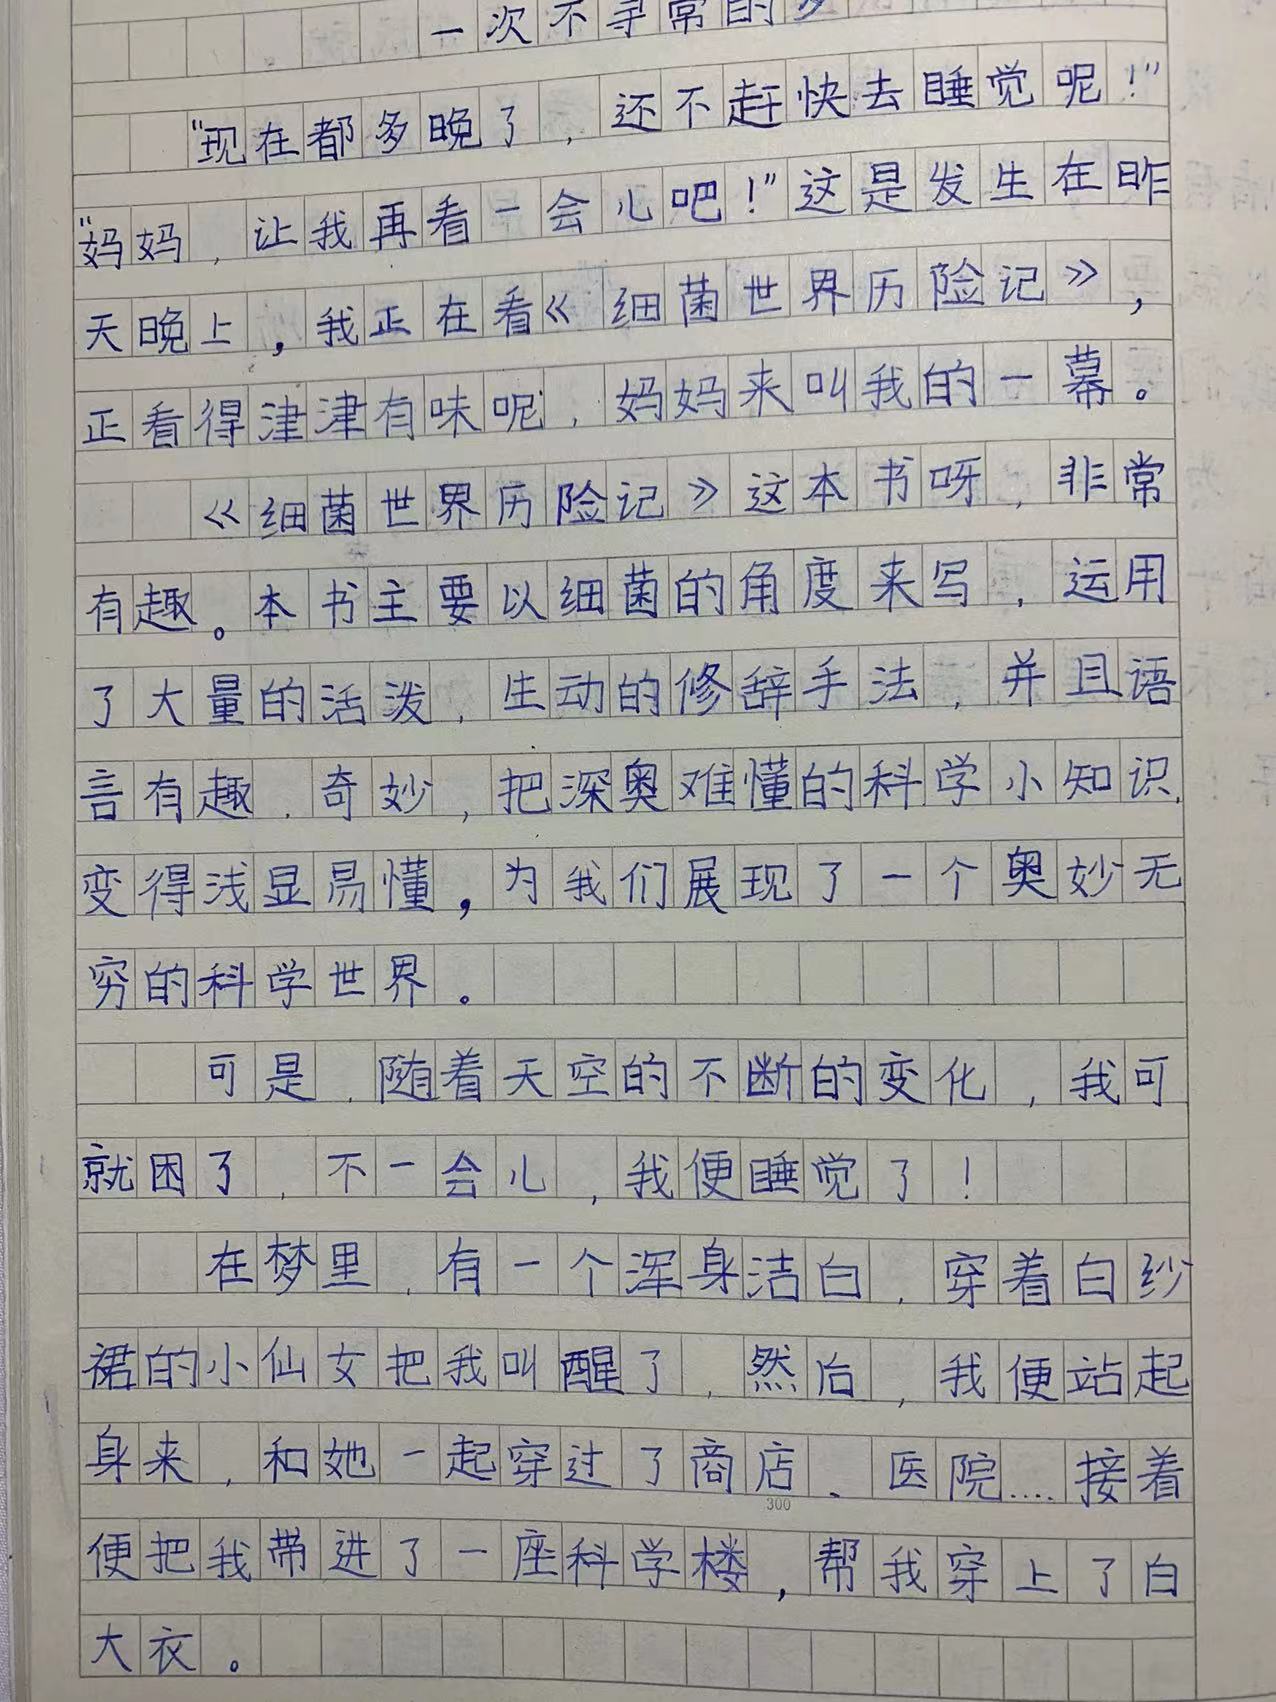 一次不寻常的梦
"现在都多晚了，还不赶快去睡觉呢！"
"妈妈，让我再看一会儿吧！"这是发生在昨
天晚上，我正在看《细菌世界历险记》，
正看得津津有味呢，妈妈来叫我的一幕。
《细菌世界历险记》这本书呀，非常
有趣。本书主要以细菌的角度来写，运用
了大量的活泼、生动的修辞手法，并且语
言有趣、奇妙，把深奥难懂的科学小知识，
变得浅显易懂，为我们展现了一个奥妙无
穷的科学世界。
可是，随着天空的不断的变化，我可
就困了，不一会儿，我便睡觉了！
在梦里，有一个浑身洁白，穿着白纱
裙的小仙女把我叫醒了，然后，我便站起
身来，和她一起穿过了商店、医院....接着
300
便把我带进了一座科学楼，帮我穿上了白
大衣。